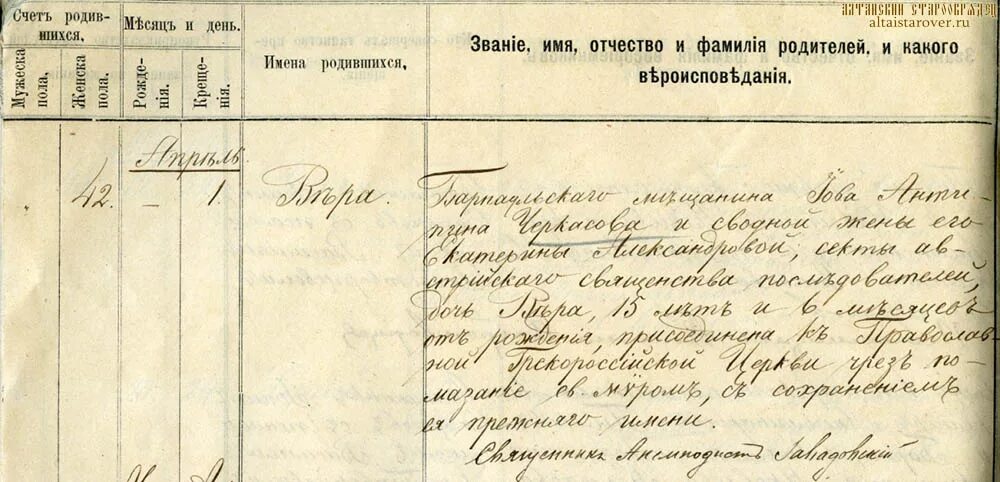 АЛТАЙСКИЙ СТАРООБРЯДЕЦ
altaistarover.ru
Счетъ родив-
шихся.
Мужеска
пола.
Женска
пола.
Мѣсяцъ и день.
Рожде-
нія.
Креще-
нія.
Имена родившихся.
Званіе, имя, отчество и фамилія родителей, и какого
вѣроисповѣданія.
Апрѣль
42.
–
1.
Вѣра.
Барнаульскаго мѣщанина Іова Анти-
пина Черкасова и сводной жены его
Екатерины Александровой, секты ав-
стрійскаго священства послѣдователей,
дочь Вѣра, 15 лѣтъ и 6 мѣсяцевъ
отъ рожденія, присоединена къ Православ-
ной Грекороссійской Церкви чрезъ по-
мазаніе св. мѵромъ, съ сохраненіемъ
ея прежняго имени.
Священникъ Анемподистъ Завадовскій